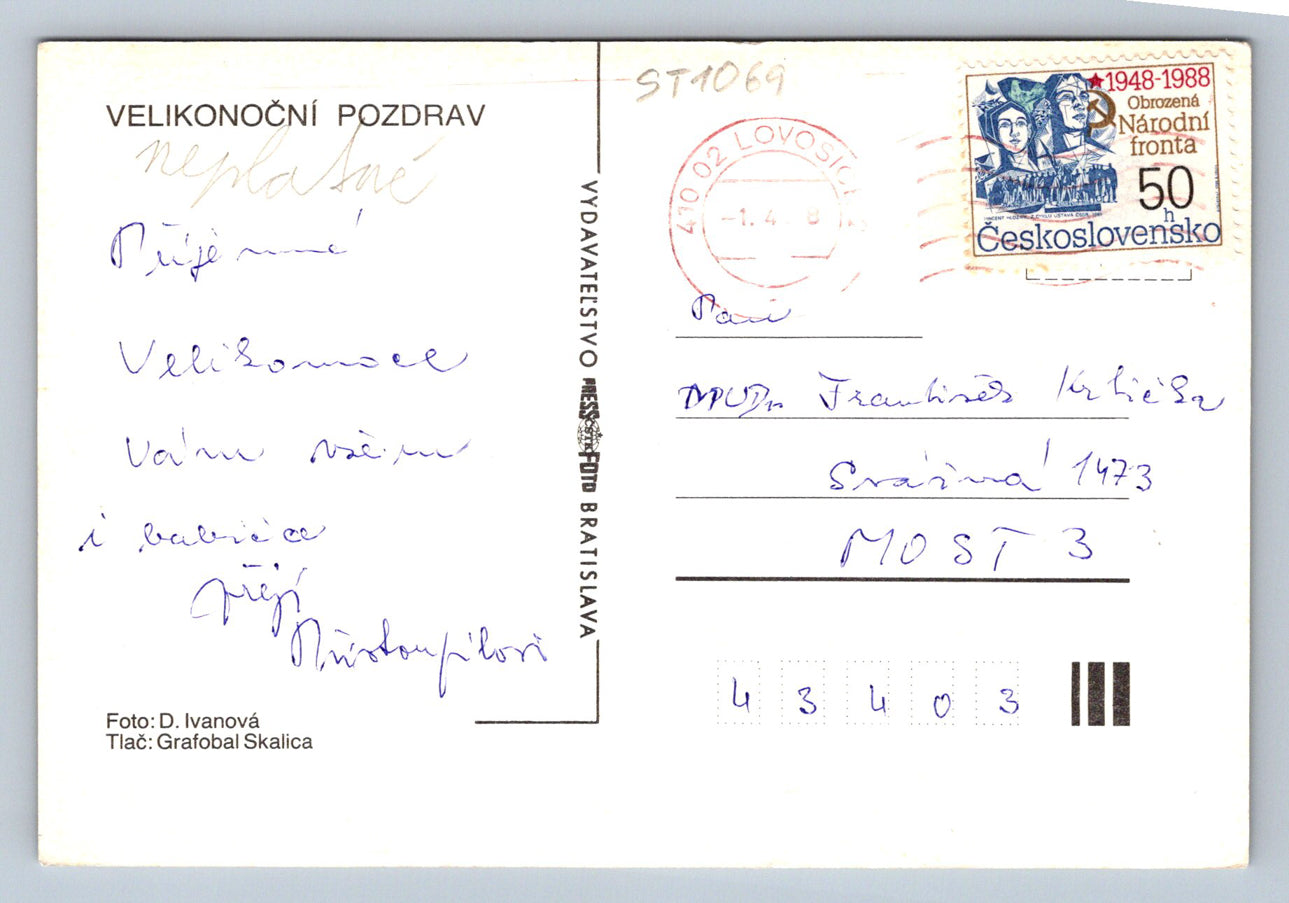 VELIKONOČNÍ POZDRAV
neplatné
Příjemné
Velikonoce
Vám všem
i babičce
přejí
Foto: D. Ivanová
Tlač: Grafobal Skalica
VYDAVATEĽSTVO PRESSFOTO BRATISLAVA
ČSTK
ST1069
410 02 LOVOSICE
-1. 4. 8
1948-1988
Obrozená
Národní
fronta
50
h
Československo
Paní
MUDr František
1473
MOST 3
4 3 4 0 3